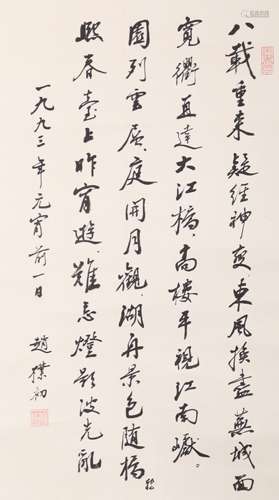 八載重来疑經神变東風換盡蕪城面
寬衢直達大江橋,高樓平視江南巘。
園列雲屏,庭開月觀,湖舟景色随橋轉
熙春臺上昨宵遊,難忘燈影波光亂
一九九三年元宵前一日
趙樸初